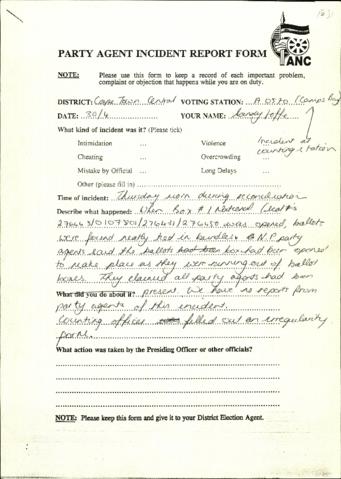 ANC
PARTY AGENT INCIDENT REPORT FORM
NOTE: Please use this form to keep a record of each important problem,
complaint or objection that happens while you are on duty.
DISTRICT: Cape Town Central VOTING STATION: (Camps Bay)
DATE: 30/4 YOUR NAME: Sandy
What kind of incident was it? (Please tick)
Intimidation ... Violence Incident at
Cheating ... Overcrowding counting station
Mistake by Official ... Long Delays ...
Other (please fill in)
Time of incident: Thursday morn during reconciliation
Describe what happened: When Box # 1 National
was opened, ballots
were found neatly tied in bundles. N.P party
agents said the ballots box had been opened
to make place as they were running out of ballot
boxes. They claimed all party agents had been
What did you do about it? present. We have no reports from
party agents of this incident.
Counting officer filled out an irregularity
form.
What action was taken by the Presiding Officer or other officials?
NOTE: Please keep this form and give it to your District Election Agent.